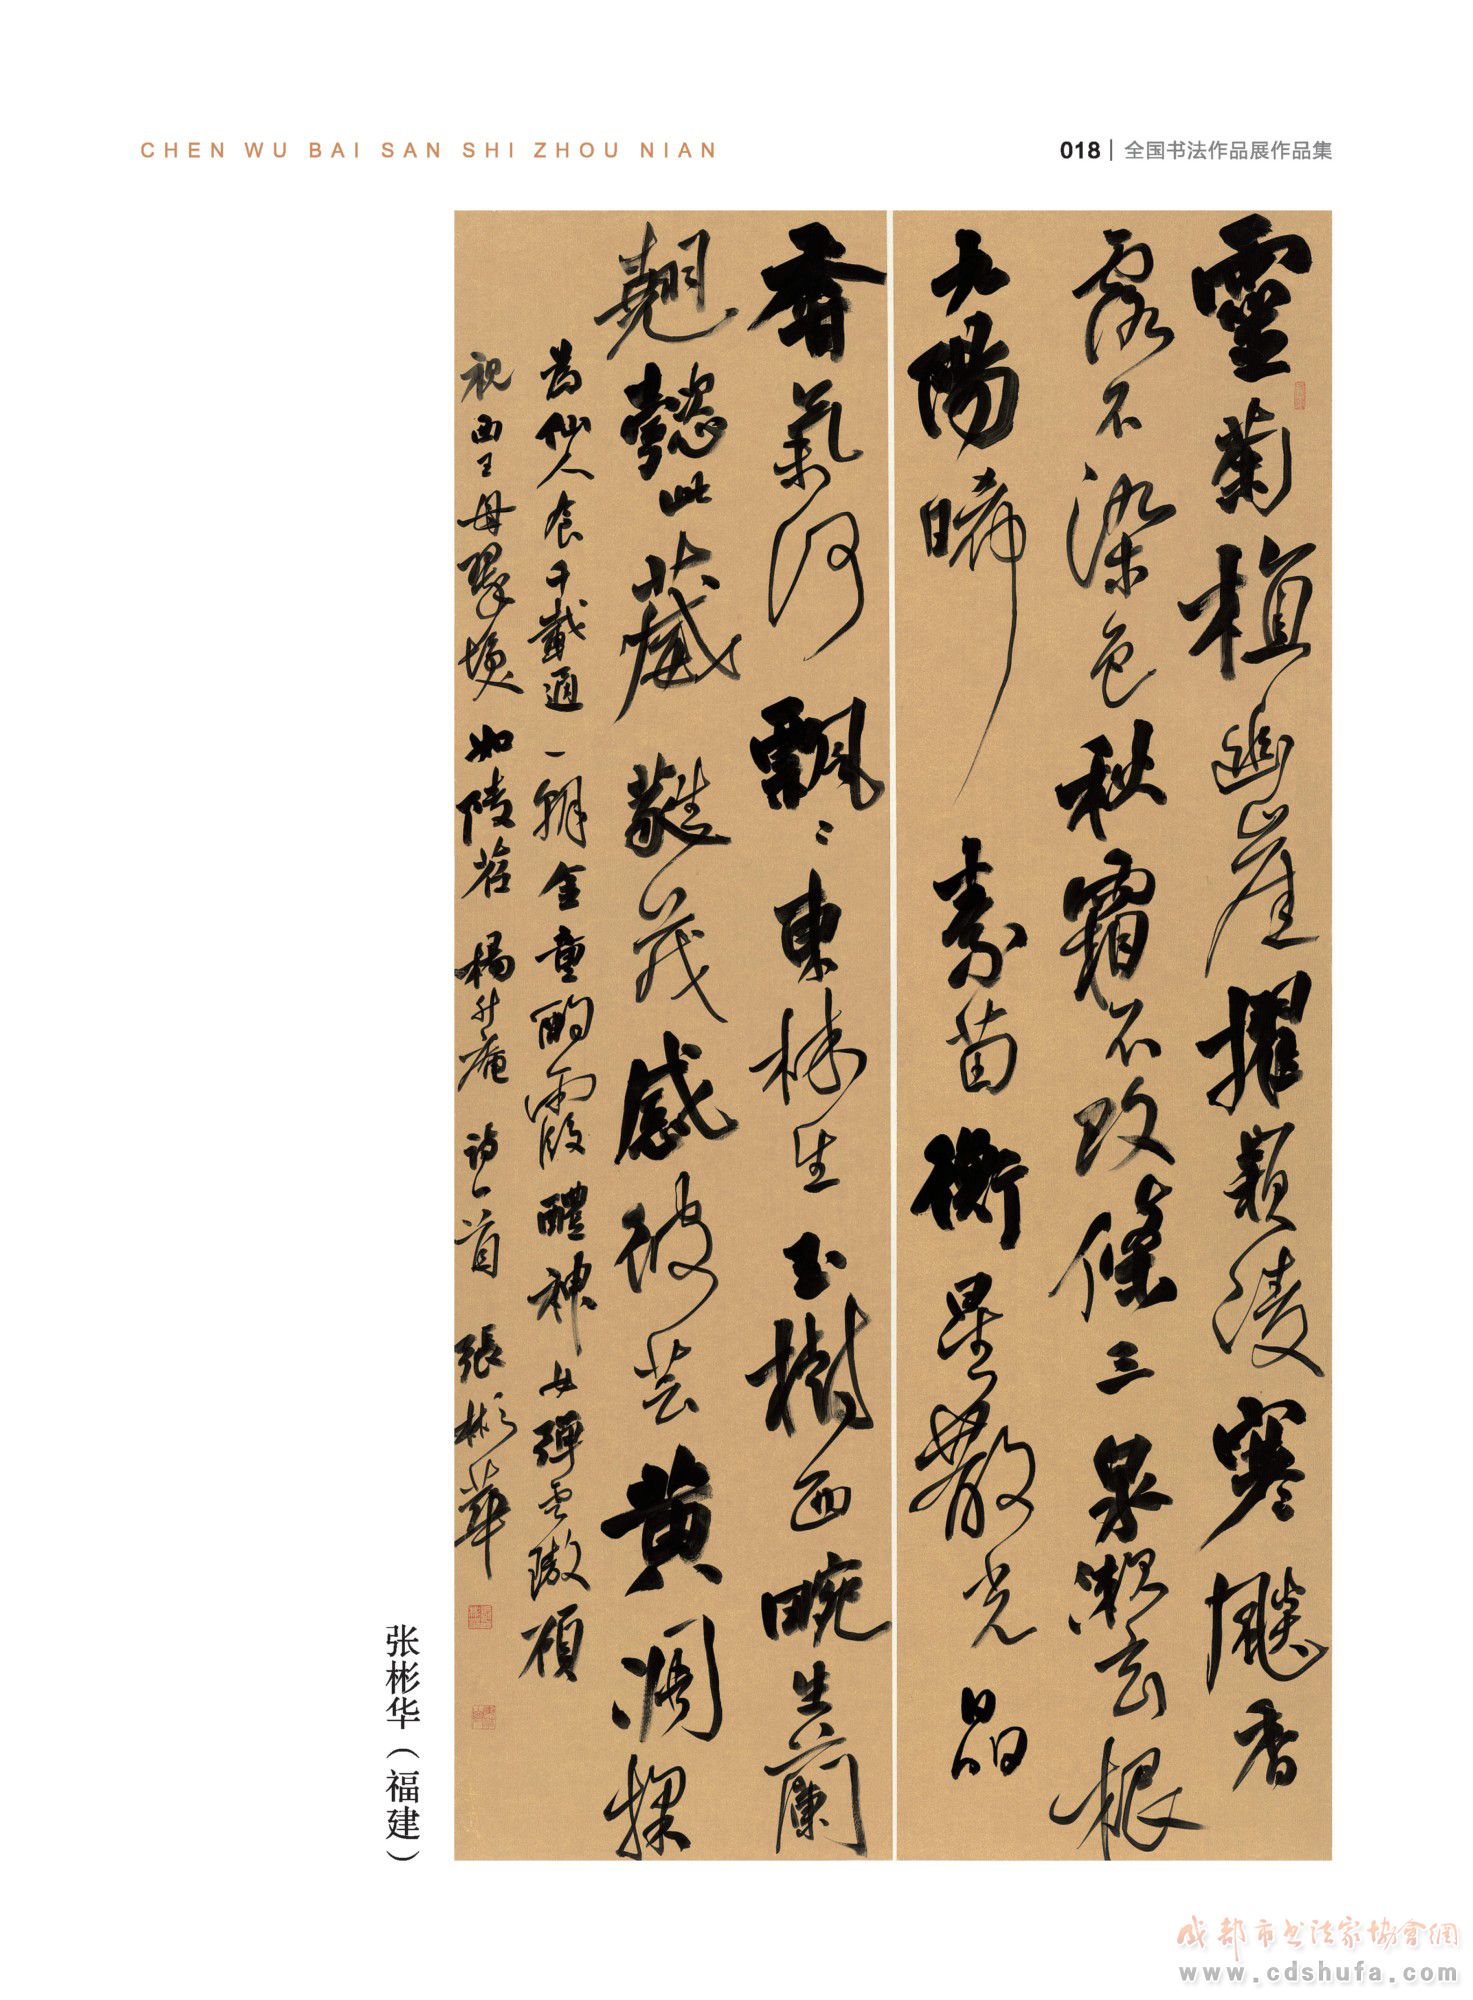 CHEN WU BAI SAN SHI ZHOU NIAN
018 | 全国书法作品展作品集
靈菊植幽崖擢穎凌寒飈春
露不染色秋霜不改條三泉漱玄根
九陽晞素苗衡星散光晶
香氣何飄々東林生玉樹西畹生蘭
翹懿此葳蕤茂感彼芸黃凋採
為仙人食千載適一朝金童酌霞醴神女彈雲璈願
祝西王母翠鬢如陵苕 楊升庵詩一首 張彬華
张彬华（福建）
成都市书法家協會網
www.cdshufa.com